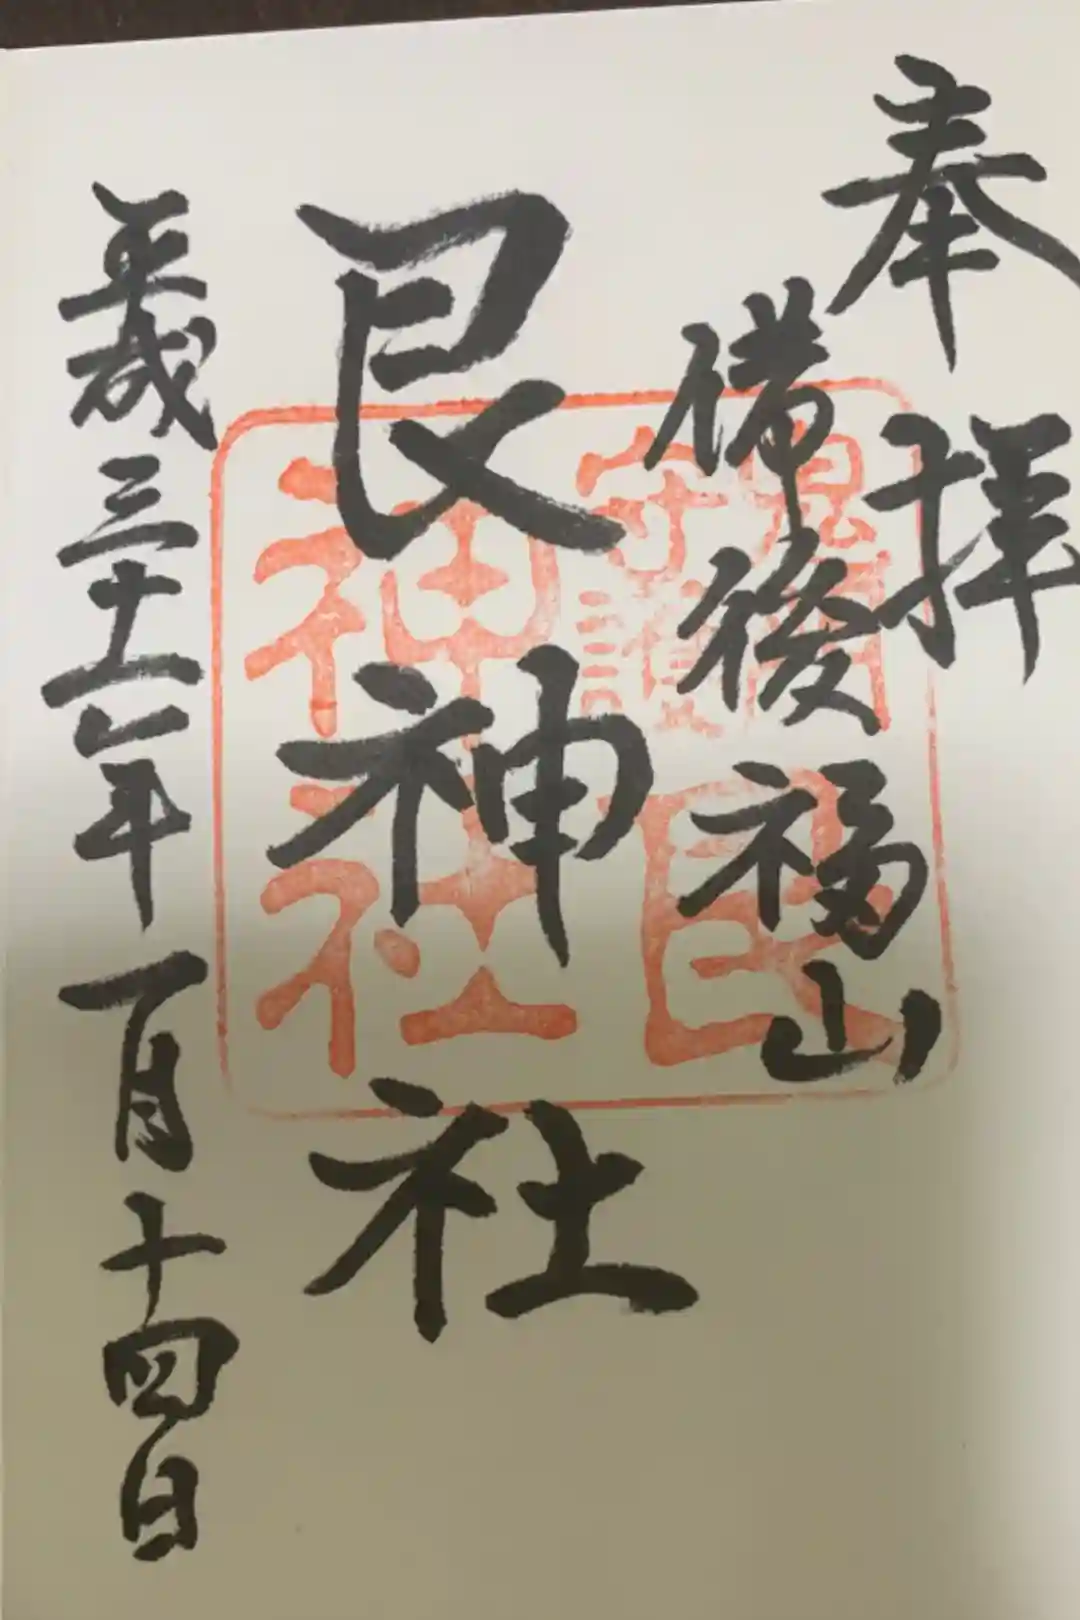 奉拝
備後福山
艮神社
平成三十一年一月十四日
鬼門
守護
艮
神社